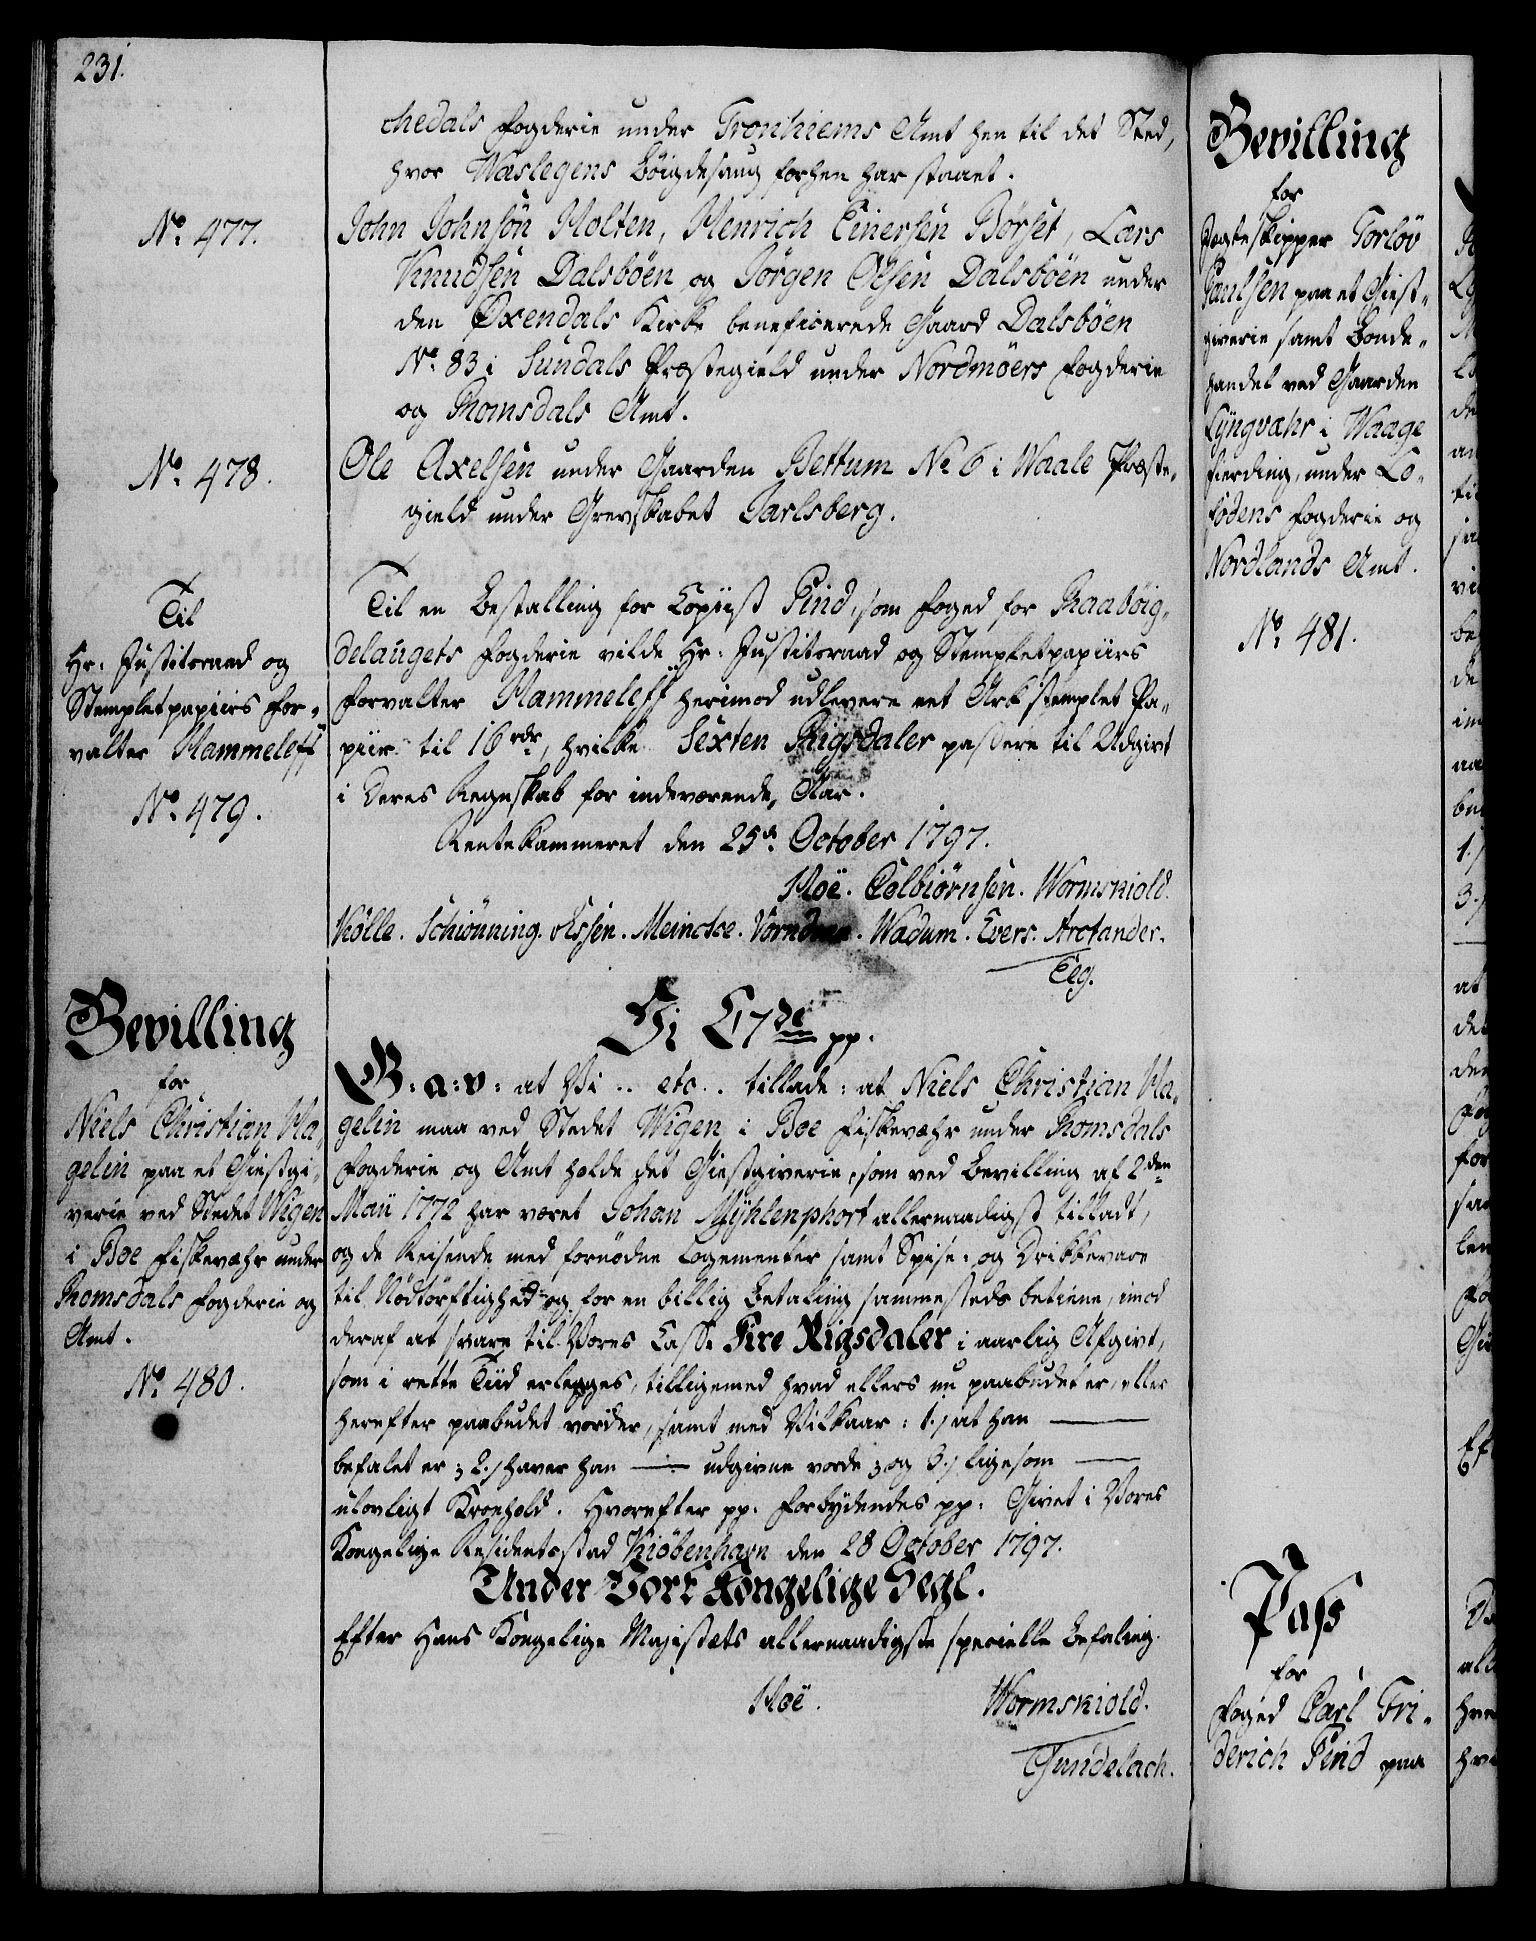 231.
chedals Fogderie under Tronhiems Amt hen til det Sted,
hvor Wæslegens Bøigdesaug forhen har staaet.
No. 477.
John Johnsøn Holten, Henrich Einersen Børset, Lars
Knudsen Dalsbøen og Jørgen Olsen Dalsbøen under
den Øxendals Kirke beneficerede Gaard Dalsbøen
No. 83 i Sundals Præstegield under Nordmøers Fogderie
og Romsdals Amt.
No. 478.
Ole Axelsen under Gaarden Bettum No 6 i Waale Præste-
gield under Grevskabet Jarlsberg.
Til
Hr: Justitsraad og
Stempletpapiirs For-
valter Hammeleff
No. 479.
Til en Bestalling for Copiist Pind, som Foged for Raabøig-
delaugets Fogderie vilde Hr: Justitsraad og Stempletpapiirs
Forvalter Hammeleff herimod udlevere eet Ark stemplet Pa-
piir til 16 rdr, hvilke Sexten Rigsdaler passere til Udgivt
i Deres Regnskab for indeværende Aar.
RenteKammeret den 25d. October 1797.
Hoë. Colbiørnsen. Wormskiold.
Kølle. Schiønning. Essen. Meincke. Wadum. Evers. Arctander.
Bevilling
for
Niels Christian Ha-
gelin paa et Giestgi-
verie ved Stedet Wigen
i Boe Fiskevæhr under
Romsdals Fogderie og
Amt.
No. 480.
Vi C. 7de pp.
G: a: v: at Vi .. etc .. tillade: at Niels Christian Ha-
gelin maa ved Stedet Wigen i Boe Fiskevæhr under Romsdals
Fogderie og Amt holde det Giestgiverie, som ved Bevilling af 2den
Maii 1772 har været Johan Mÿhlenphort allernaadigst tilladt,
og de Reisende med fornødne Logementer samt Spise- og Drikkevare
til Nødtørftighed og for en billig Betaling sammesteds betiene, imod
deraf at svare til Vores Casse Fire Rigsdaler i aarlig Afgivt,
som i rette Tiid erlegges, tilligemed hvad ellers nu paabudet er, eller
herefter paabudet vorder, samt med Vilkaar: 1.) at han ——
befalet er; 2.) haver han —— udgivne vorde; og 3.) ligesom ——
ulovligt Kroehold. Hvorefter pp. Forbydendes pp. Givet i Vores
Kongelige Residentsstad Kiøbenhavn den 28 October 1797.
Under Vort Kongelige Segl.
Efter Hans Kongelige Majestæts allernaadigste specielle Befaling.
Hoë. Wormskiold.
Gundelach.
Bevilling
for
Jægteskipper Torlöv
Paulsen paa et Giest-
giverie samt Bonde-
handel ved Gaarden
Lyngvæhr i Waage
Fierding, under Lo-
fødens Fogderie og
Nordlands Amt.
No. 481.
Pass
for
Foged Carl Fri-
derich Pind paa